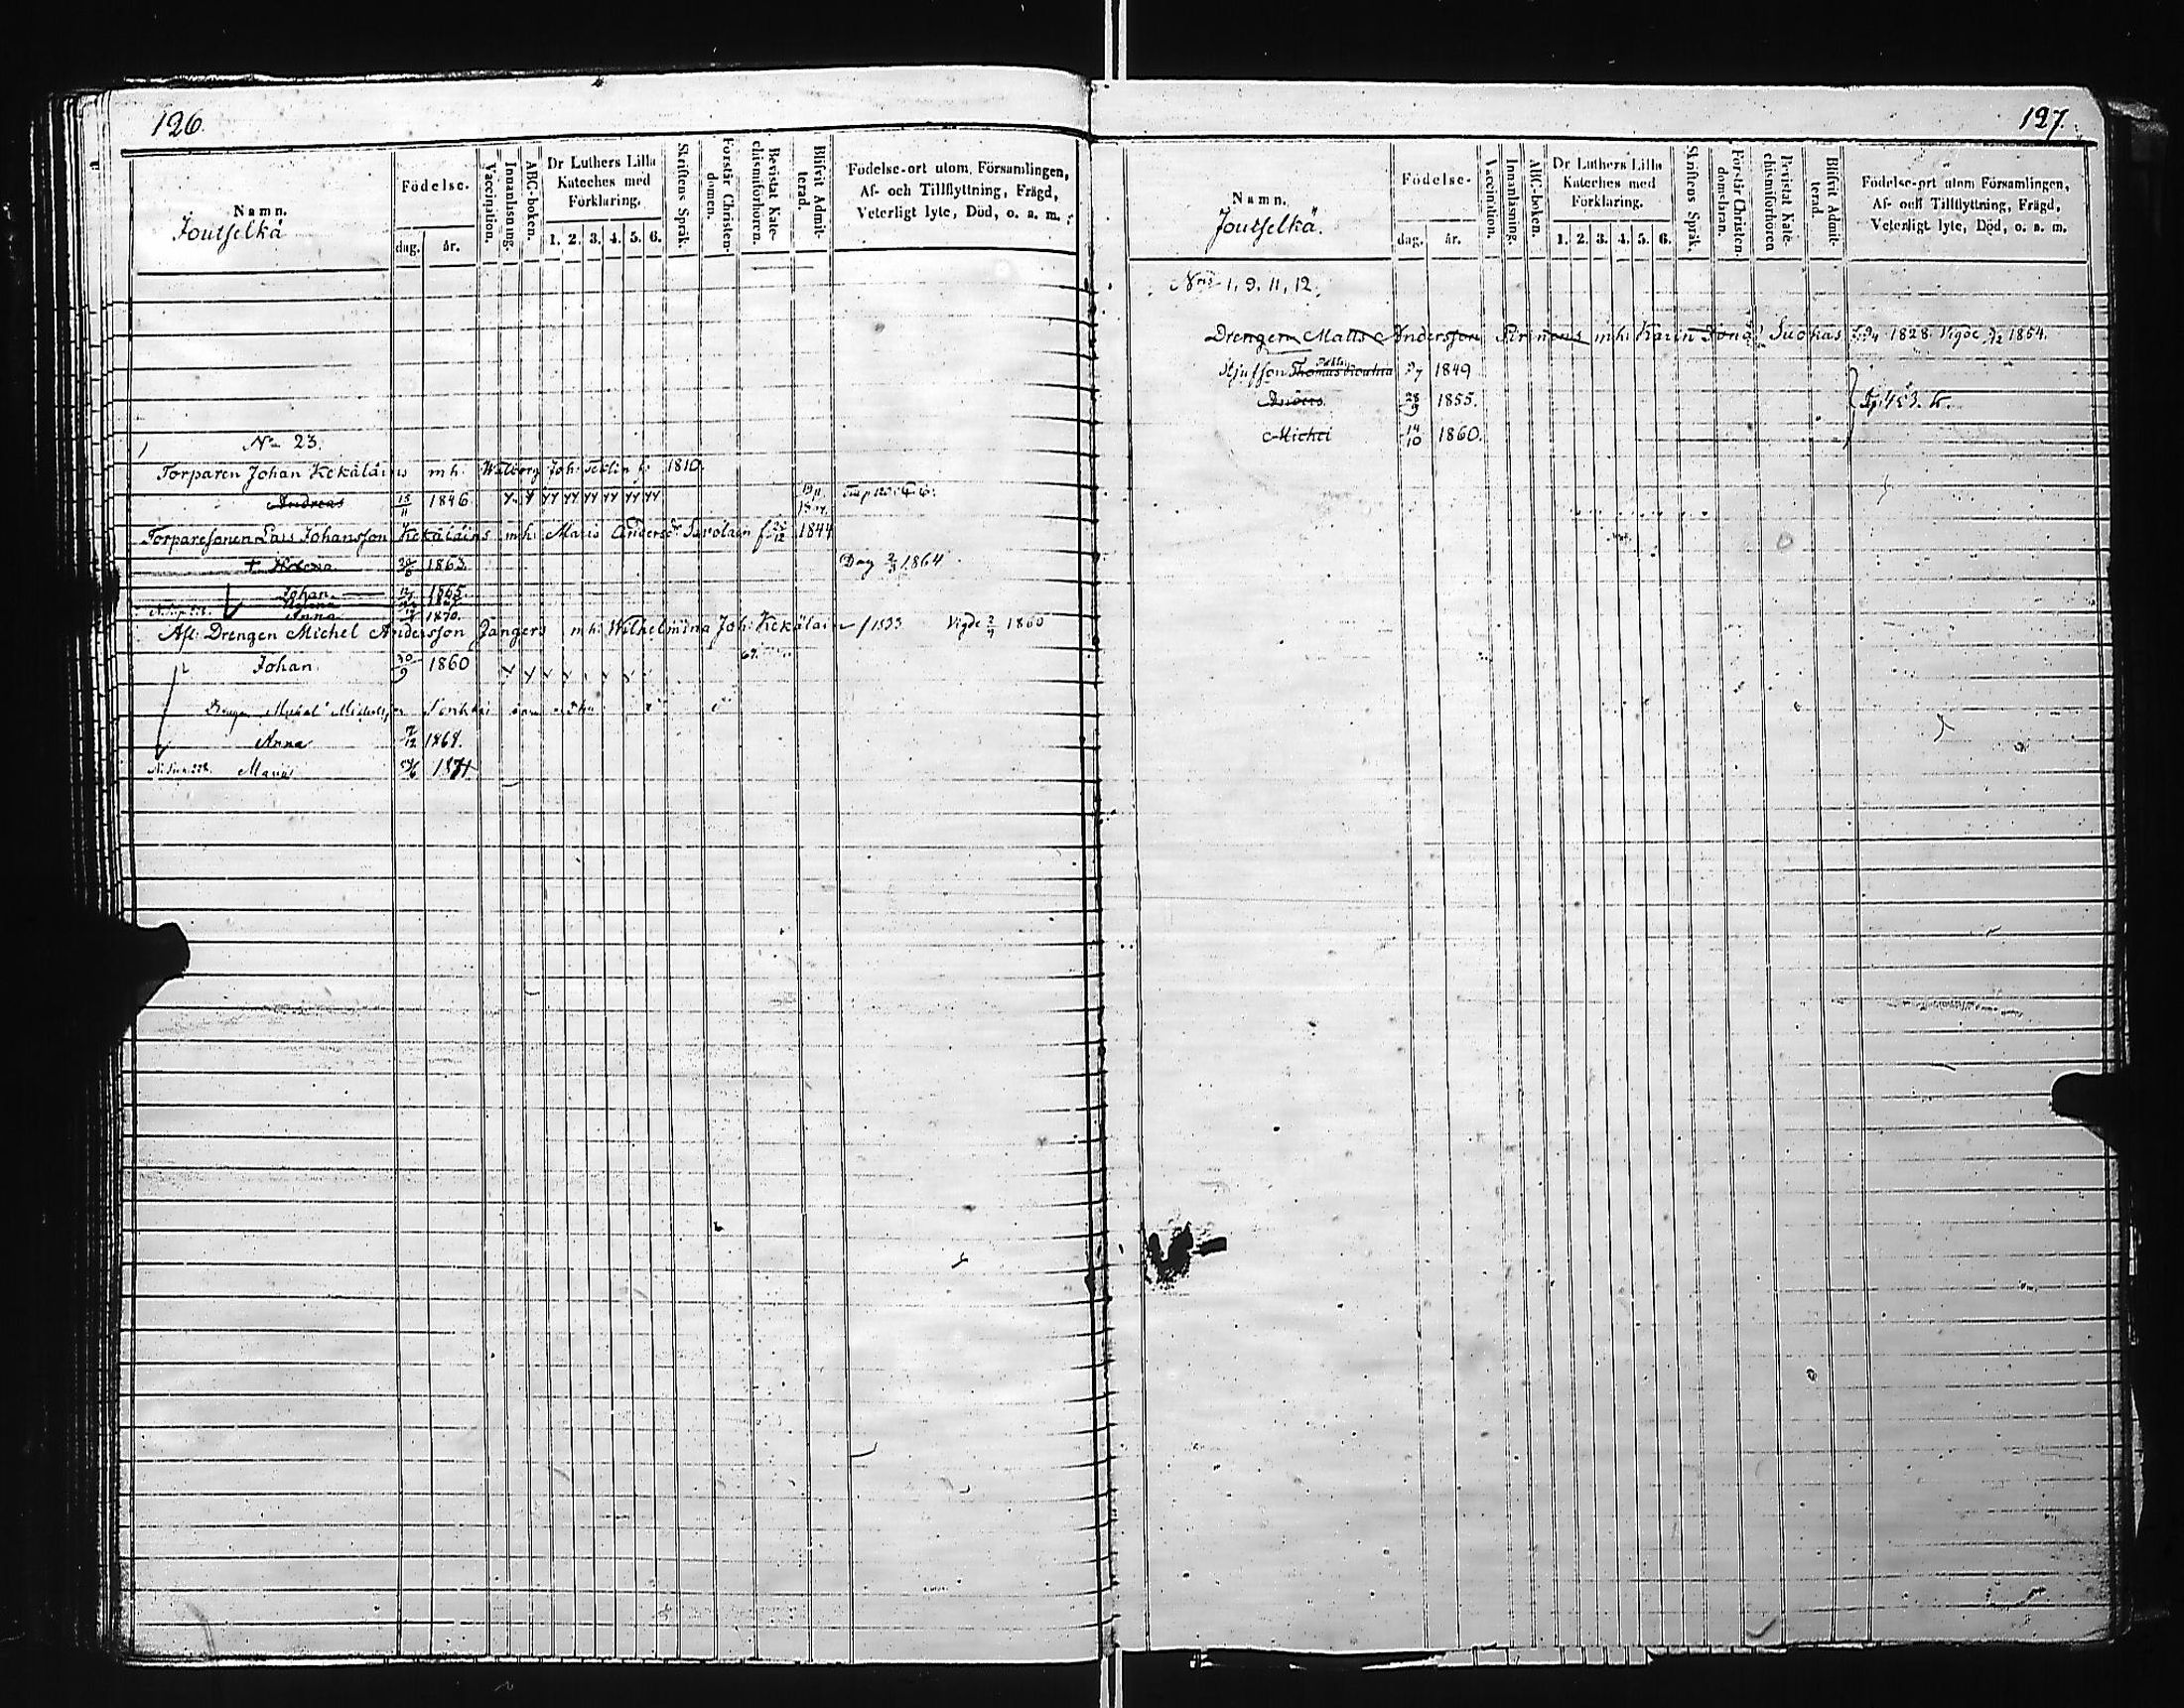 126.
Namn.
Joutselkä
Födelse.
dag. år.
Vaccination.
Innanläsning.
ABC-boken.
Dr Luthers Lilla
Kateches med
Förklaring.
1. 2. 3. 4. 5. 6.
Skriftens Språk.
Förstår Christen-
domen.
Bevistat Kate-
chismiförhören.
Blifvit Admit-
terad.
Födelse-ort utom Församlingen,
Af- och Tillflyttning, Frägd,
Veterligt lyte, Död, o. s. m.
No 23.
Torparen Johan Kekäläins m.h. Walborg Joh: Teklin f. 1810.
Andreas 15/11 1846
Torparesonen Lars Johansson Kekäläins m.h. Maria Andersdr Savolain f. 1844
+ Helena 1863. Dog 1864
Johan 1865.
Helena
Anna 1870.
Afl. Drengen Michel Andersson Jangers m.h. Wilhelmina Joh: Kekäläin f 1833 Vigde 2/9 1860
Johan 30/9 1860
Anna 1868.
Maria 1871
127.
Namn.
Joutselkä.
Födelse-
dag. år.
Vaccination.
Innanläsning.
ABC-boken.
Dr Luthers Lilla
Kateches med
Förklaring.
1. 2. 3. 4. 5. 6.
Skriftens Språk.
Förstår Christen-
domsläran.
Bevistat Kate-
chismiförhören
Blifvit Admit-
terad.
Födelse-ort utom Församlingen,
Af- och Tillflyttning, Frägd,
Veterligt lyte, Död, o. s. m.
Nris 1, 9, 11, 12.
Drengen Matts Andersson Pirinens m.h. Karin Jonäd. Suokas 1828. Vigde 1854.
Stjufson Thomas 1849
28/9 1855.
Michel 14/10 1860.